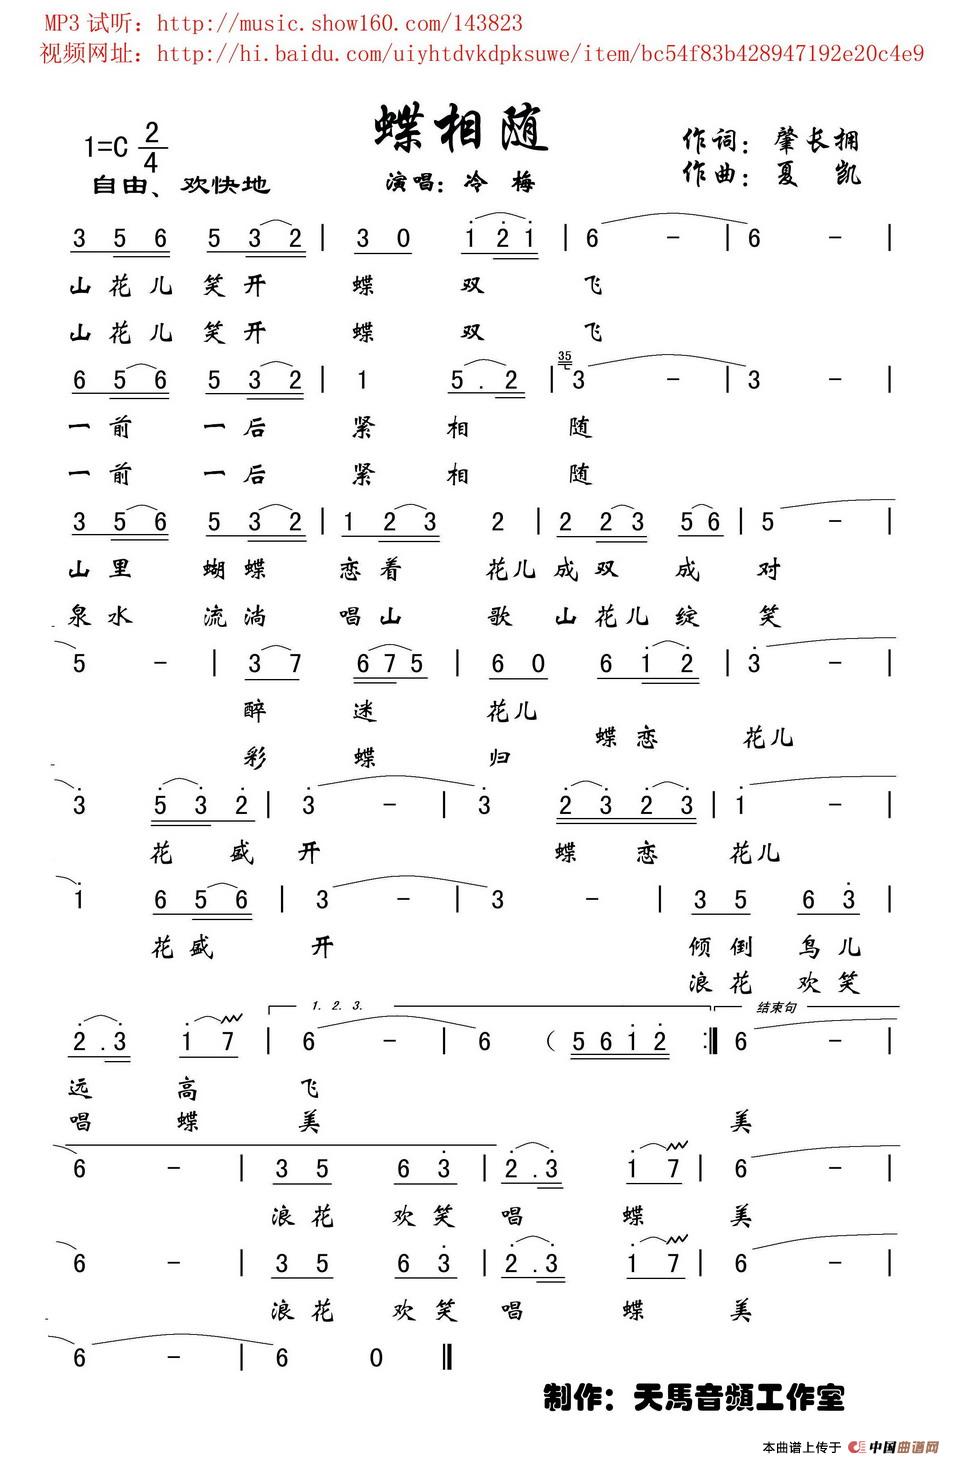 MP3 试听：http://music.show160.com/143823
视频网址：http://hi.baidu.com/uiyhtdvkdpksuwe/item/bc54f83b428947192e20c4e9
蝶相随
1=C 2/4
作词：肇长拥
自由、欢快地
演唱：冷 梅
作曲：夏 凯
3 5 6 5 3 2 | 3 0 1 2 1 | 6 - | 6 - |
山花儿 笑开 蝶 双 飞
山花儿 笑开 蝶 双 飞
6 5 6 5 3 2 | 1 5 . 2 | 35 3 - | 3 - |
一前 一后 紧 相 随
一前 一后 紧 相 随
3 5 6 5 3 2 | 1 2 3 2 | 2 2 3 5 6 | 5 - |
山里 蝴蝶 恋着 花儿 成双 成 对
泉水 流淌 唱山 歌 山花儿绽 笑
5 - | 3 7 6 7 5 | 6 0 6 1 2 | 3 - |
醉 迷 花儿 蝶恋 花儿
彩 蝶 归
3 5 3 2 | 3 - | 3 2 3 2 3 | 1 - |
花 盛 开 蝶 恋 花儿
1 6 5 6 | 3 - | 3 - | 3 5 6 3 |
花盛 开 倾倒 鸟儿
浪花 欢笑
1. 2. 3. 结束句
2 . 3 1 7 | 6 - | 6 （ 5 6 1 2 :| 6 - |
远 高 飞
唱 蝶 美 美
6 - | 3 5 6 3 | 2 . 3 1 7 | 6 - |
浪花 欢笑 唱 蝶 美
6 - | 3 5 6 3 | 2 . 3 1 7 | 6 - |
浪花 欢笑 唱 蝶 美
6 - | 6 0 ‖
制作：天馬音頻工作室
本曲谱上传于 中国曲谱网